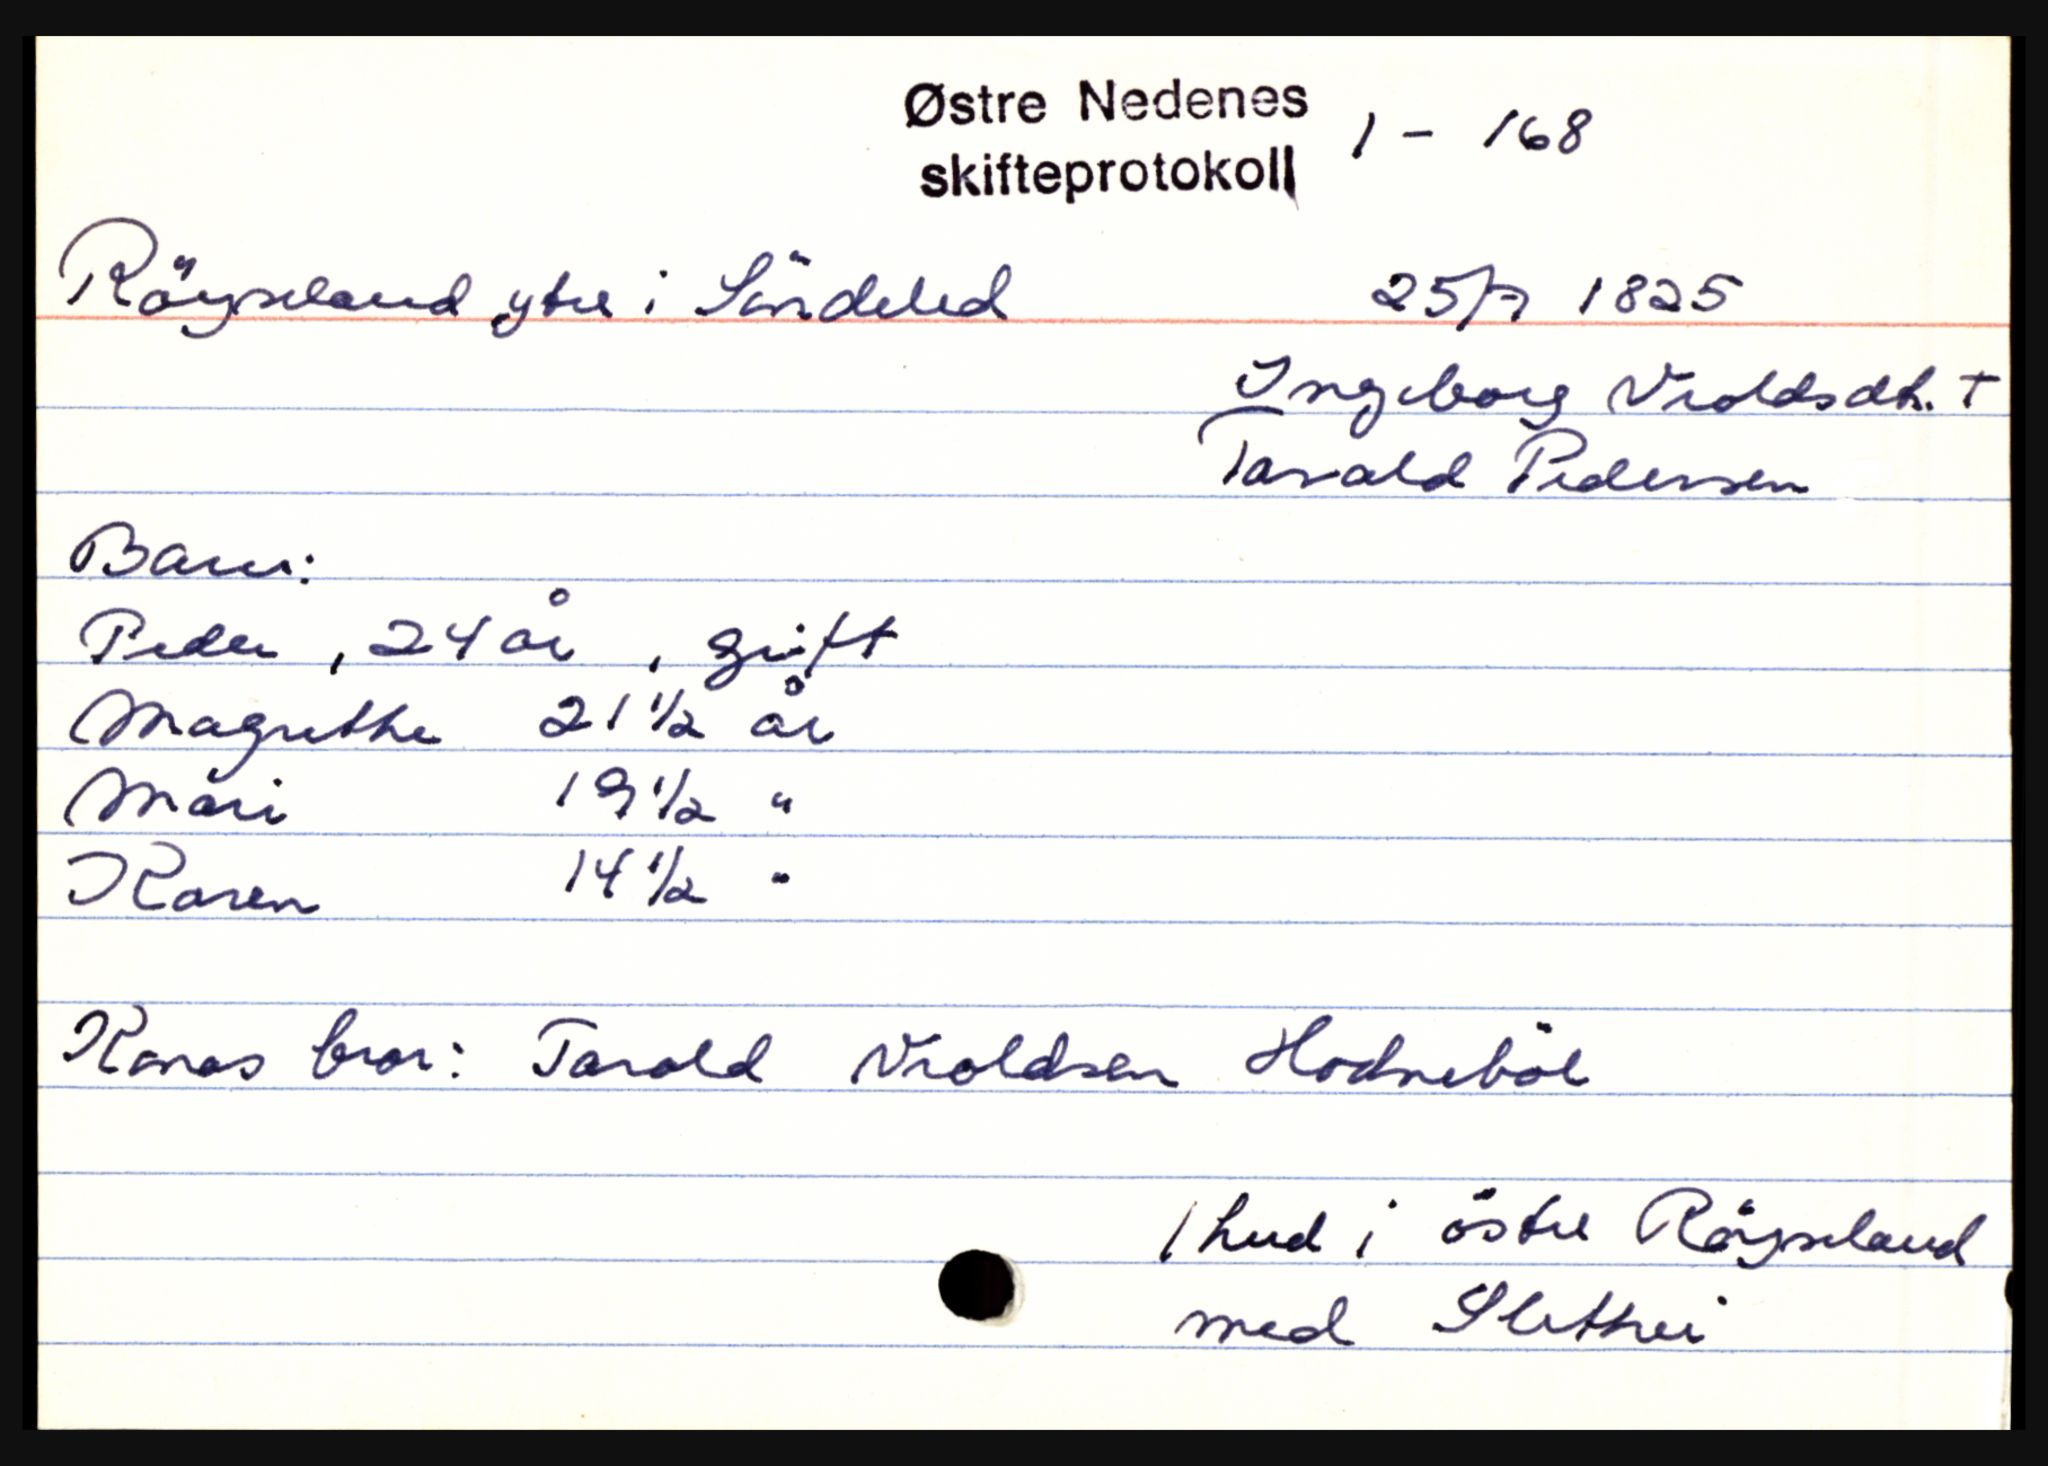 Østre Nedenes
skifteprotokoll 1 - 168
Röysland ytre i Söndeled 25/7 1825
Ingeborg Vroldsdtr. +
Tarald Pedersen
Barn:
Peder, 24 år, gift
Magrethe 21 1/2 år
Mari 19 1/2 "
Karen 14 1/2 "
Konas bror: Tarald Vroldsen Hodneböl
1 hud i östre Röysland
med Slethei